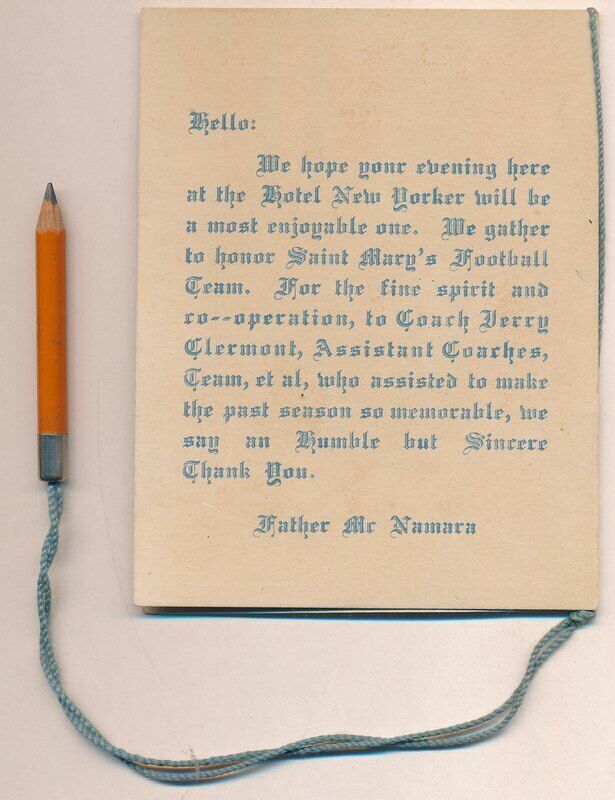 Hello:
We hope your evening here
at the Hotel New Yorker will be
a most enjoyable one. We gather
to honor Saint Mary's Football
Team. For the fine spirit and
co--operation, to Coach Jerry
Clermont, Assistant Coaches,
Team, et al, who assisted to make
the past season so memorable, we
say an Humble but Sincere
Thank You.
Father Mc Namara